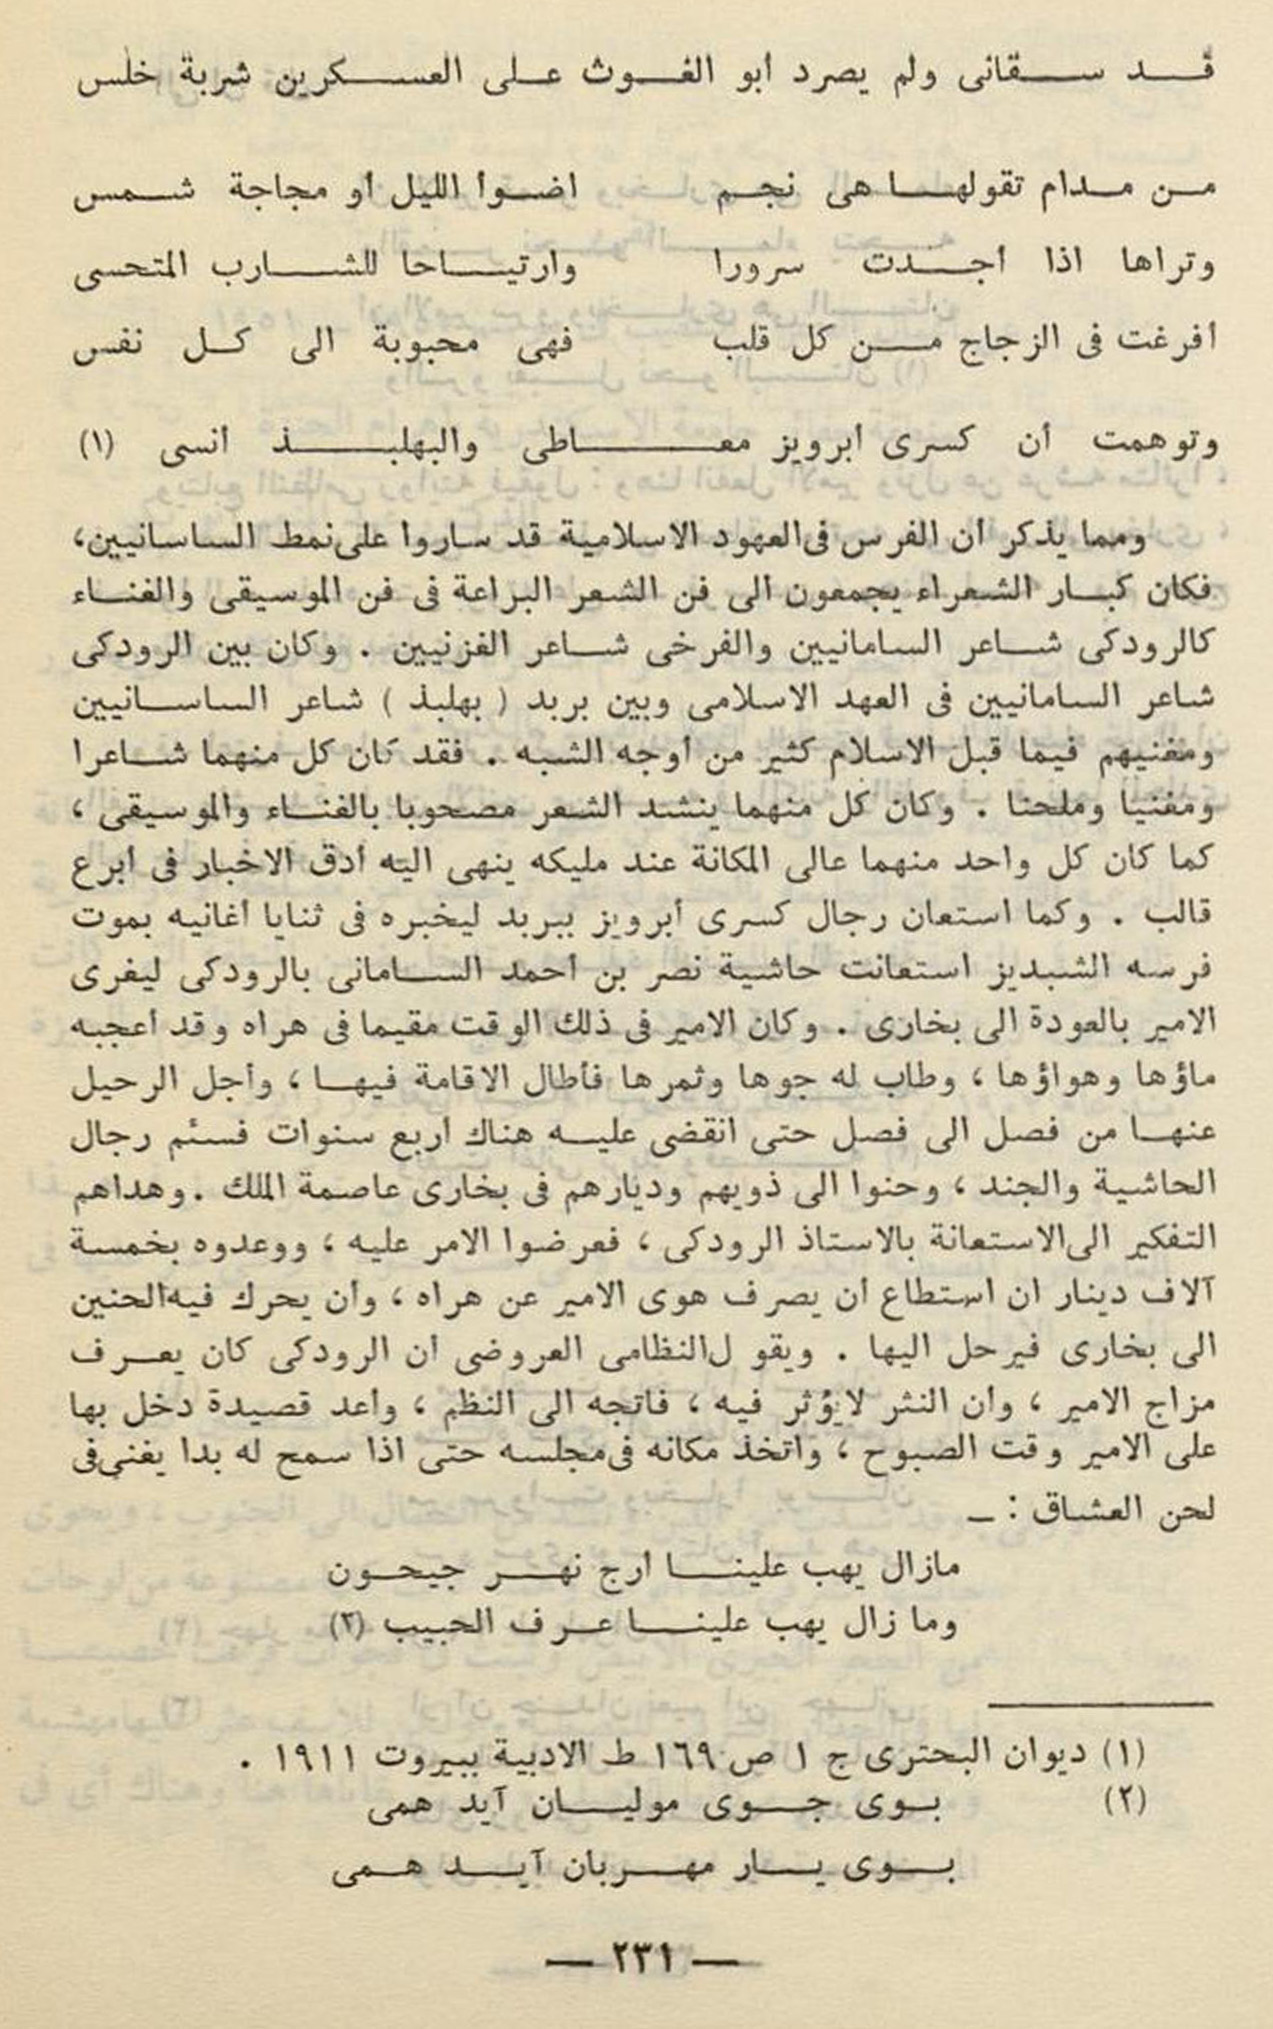 قد سقانى ولم يصرد أبو الغوث على العسكرين شربة خلس
من مدام تقولها هى نجم أضوأ الليل أو مجاجة شمس
وتراها اذا أجدت سرورا وارتياحا للشارب المتحسى
أفرغت فى الزجاج من كل قلب فهى محبوبة الى كل نفس
وتوهمت أن كسرى أبرويز معاطى والبهلبذ أنسى (١)
ومما يذكر أن الفرس فى العهود الاسلامية قد ساروا على نمط الساسانيين،
فكان كبار الشعراء يجمعون الى فن الشعر البراعة فى فن الموسيقى والغناء
كالرودكى شاعر السامانيين والفرخى شاعر الغزنيين . وكان بين الرودكى
شاعر السامانيين فى العهد الاسلامى وبين بربد ( بهلبذ ) شاعر الساسانيين
ومغنيهم فيما قبل الاسلام كثير من أوجه الشبه . فقد كان كل منهما شاعرا
ومغنيا وملحنا . وكان كل منهما ينشد الشعر مصحوبا بالغناء والموسيقى ،
كما كان كل واحد منهما عالى المكانة عند مليكه ينهى اليه أدق الاخبار فى أبرع
قالب . وكما استعان رجال كسرى أبرويز ببربد ليخبره فى ثنايا أغانيه بموت
فرسه الشبديز استعانت حاشية نصر بن أحمد السامانى بالرودكى ليغرى
الامير بالعودة الى بخارى . وكان الامير فى ذلك الوقت مقيما فى هراه وقد أعجبه
ماؤها وهواؤها ، وطاب له جوها وثمرها فأطال الاقامة فيها ، وأجل الرحيل
عنها من فصل الى فصل حتى انقضى عليه هناك أربع سنوات فسئم رجال
الحاشية والجند ، وحنوا الى ذويهم وديارهم فى بخارى عاصمة الملك . وهداهم
التفكير الى الاستعانة بالاستاذ الرودكى ، فعرضوا الامر عليه ، ووعدوه بخمسة
آلاف دينار ان استطاع أن يصرف هوى الامير عن هراه ، وأن يحرك فيه الحنين
الى بخارى فيرحل اليها . ويقو ل النظامى العروضى أن الرودكى كان يعرف
مزاج الامير ، وأن النثر لا يؤثر فيه ، فاتجه الى النظم ، وأعد قصيدة دخل بها
على الامير وقت الصبوح ، واتخذ مكانه فى مجلسه حتى اذا سمح له بدا يغنى فى
لحن العشاق : ـ
مازال يهب علينا أرج نهر جيحون
وما زال يهب علينا عرف الحبيب (٢)
(١) ديوان البحترى ج ١ ص ١٦٩ ط الادبية ببيروت ١٩١١ .
(٢) بوى جوى موليان آيد همى
بوى يار مهربان آيد همى
— ٢٣١ —